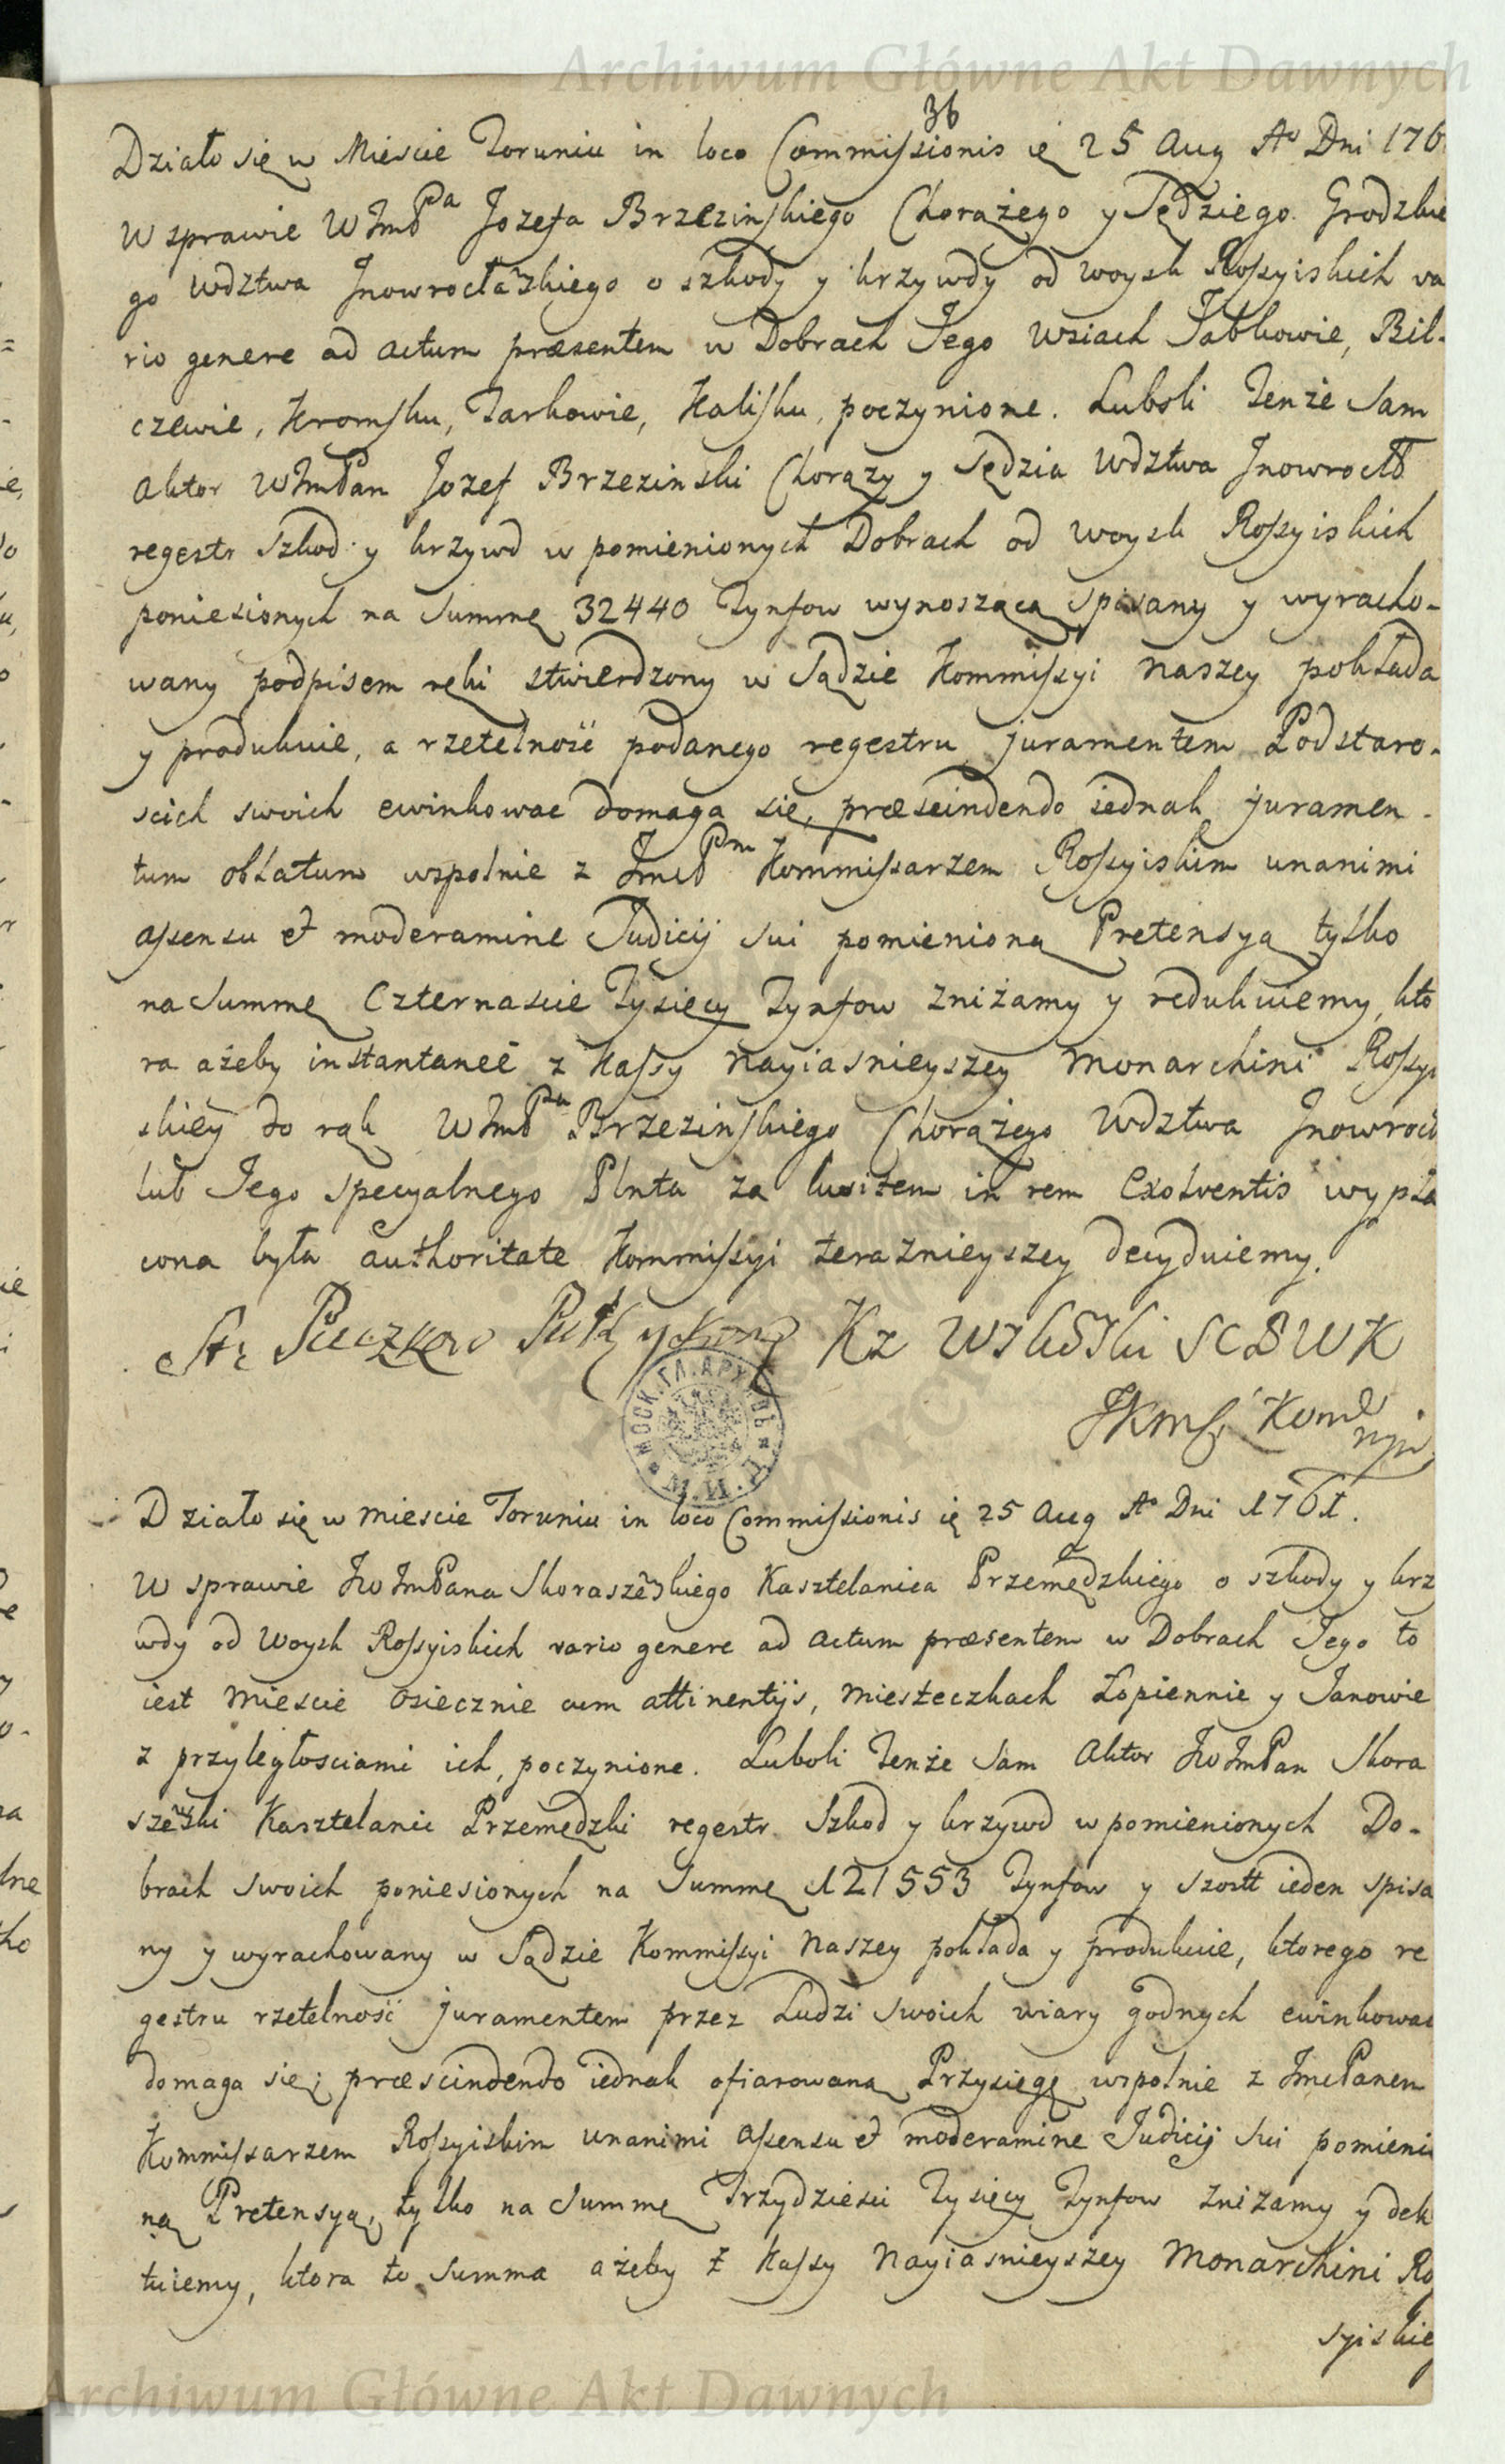 Archiwum Główne Akt Dawnych
36
Działo się w Miescie Toruniu in loco Commissionis ię 25 Aug Aº Dni 176
W sprawie WJmPa Jozefa Brzezinskiego Chorążego y Sędziego Grodzkie
go wdztwa Jnowrocławskiego o szkody y krzywdy od woysk Rossyiskich va
rio genere ad actum præsentem w Dobrach Jego wsiach Jabkowie, Bil-
czewie, Kromsku, Tarkowie, Kalisku, poczynione. Luboli Tenże Sam
Aktor WJmPan Jozef Brzezinski Chorąży y Sędzia Wdztwa Jnowrocł
regestr Szkod y krzywd w pomienionych Dobrach od woysk Rossyiskich
poniesionych na Summę 32440 Tynfow wynoszącą spisany y wyracho-
wany podpisem ręki stwierdzony w Sądzie Kommissyi naszey pokłada
y produkuie, a rzetelność podanego regestru juramentem Podstaro-
scich swoich ewinkowac domaga się, præscindendo iednak juramen-
tum oblatum wspolnie z JmcPm Kommissarzem Rossyiskim unanimi
assensu et moderamine Judicij sui pomienioną Pretensyą tylko
na Summę Czternascie Tysięcy Tynfow zniżamy y redukuiemy, kto
ra ażeby instantaneè z Kassy Nayiasnieyszey Monarchini Rossyi
skiey do rąk WJmPa Brzezinskiego Chorążego Wdztwa Jnowrocł
lub Jego specyalnego Plnta za kwitem in rem Exolventis wypła
cona była authoritate Kommissyi teraznieyszey decyduiemy.
SCBWK
JKMsci Kom
Działo się w miescie Toruniu in loco Commissionis ię 25 Aug Aº Dni 1761.
W sprawie JWJmPana Skoraszewskiego Kasztelanica Przemędzkiego o szkody y krz
wdy od Woysk Rossyiskich vario genere ad actum præsentem w Dobrach Jego to
iest Miescie Osiecznie cum attinentijs, miesteczkach Łopiennie y Janowie
z przyległosciami ich, poczynione. Luboli Tenże Sam Aktor JWJmPan Skora
szewski Kasztelanic Przemędzki regestr Szkod y krzywd w pomienionych Do-
brach swoich poniesionych na Summę 121553 Tynfow y szostt ieden spisa
ny y wyrachowany w Sądzie Kommissyi Naszey pokłada y produkuie, ktorego re
gestru rzetelność juramentem przez Ludzi swoich wiary godnych ewinkowac
domaga się; præscindendo iednak ofiarowaną Przysięgę wspolnie z JmcPanem
Kommissarzem Rossyiskim unanimi assensu et moderamine Judicij sui pomienio
ną Pretensyą, tylko na Summę Trzydziesci Tysięcy Tynfow zniżamy y dek
tuiemy, ktora to Summa ażeby z Kassy Nayiasnieyszey Monarchini Ro
syiskie
Archiwum Główne Akt Dawnych